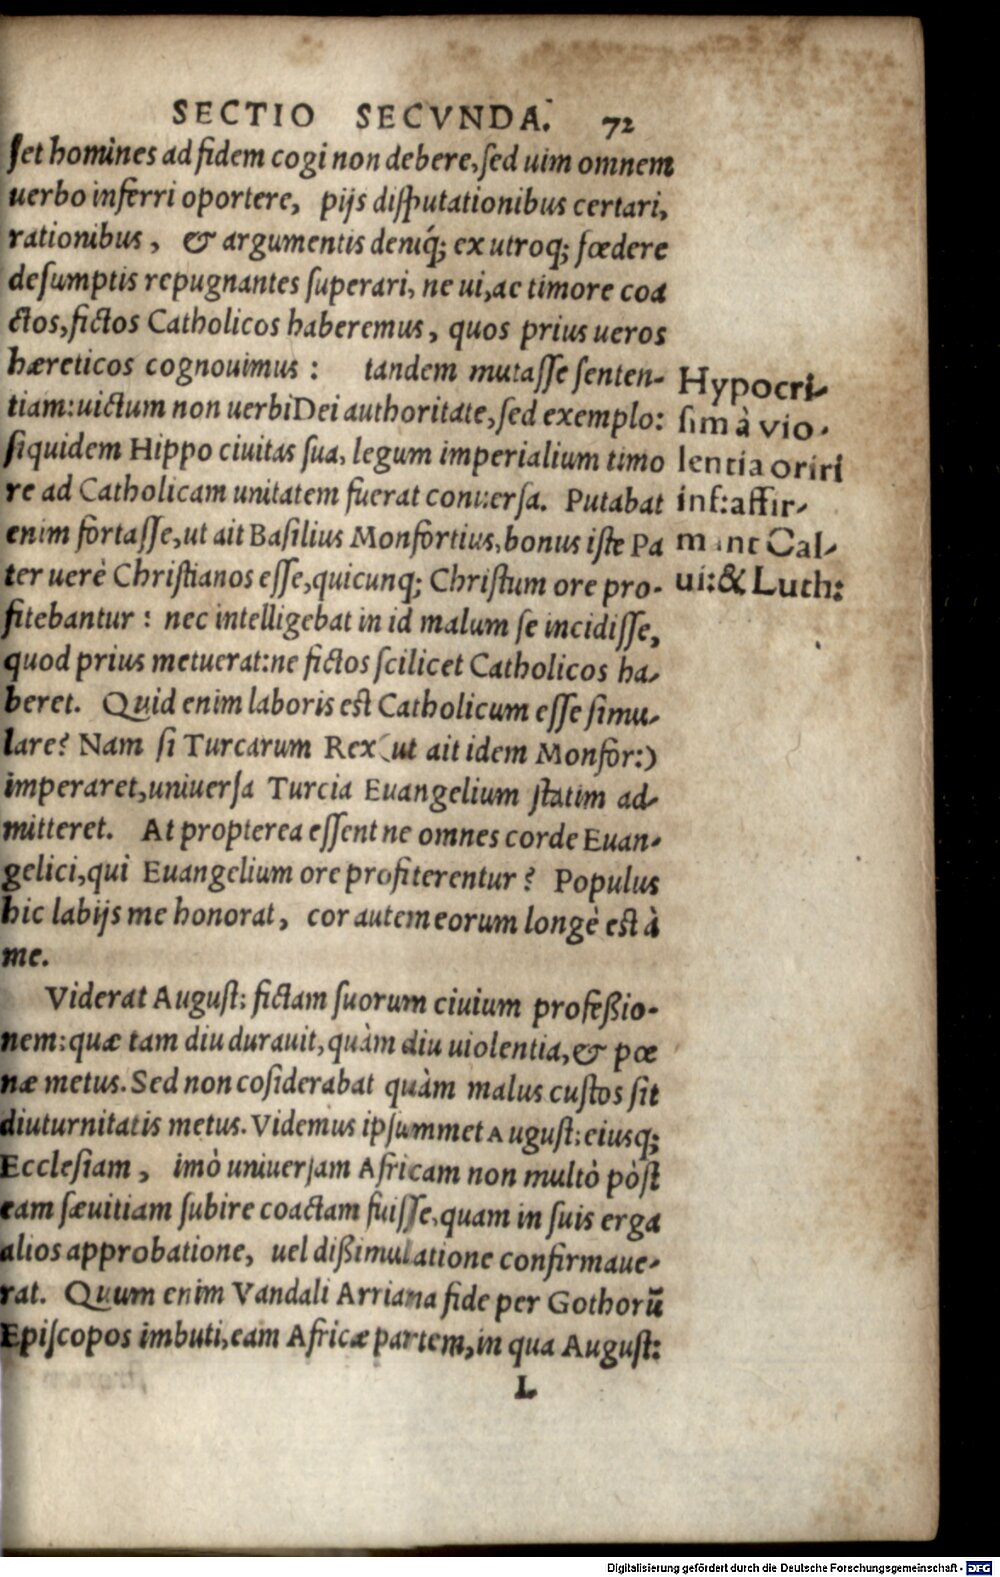 SECTIO SECVNDA. 72
ſet homines ad fidem cogi non debere, ſed uim omnem
uerbo inferri oportere, pijs diſputationibus certari,
rationibus, & argumentis deniq́; ex utroq; fœdere
deſumptis repugnantes ſuperari, ne ui, ac timore coa
ctos, fictos Catholicos haberemus, quos prius ueros
hæreticos cognouimus: tandem mutaſſe ſenten-
tiam: uictum non uerbi Dei authoritate, ſed exemplo:
ſiquidem Hippo ciuitas ſua, legum imperialium timo
re ad Catholicam unitatem fuerat conuerſa. Putabat
enim fortaſſe, ut ait Baſilius Monfortius, bonus iſte Pa
ter uerè Chriſtianos eſſe, quicunq; Chriſtum ore pro-
fitebantur: nec intelligebat in id malum ſe incidiſſe,
quod prius metuerat: ne fictos ſcilicet Catholicos ha-
beret. Quid enim laboris eſt Catholicum eſſe ſimu-
lare? Nam ſi Turcarum Rex (ut ait idem Monfor:)
imperaret, uniuerſa Turcia Euangelium ſtatim ad-
mitteret. At propterea eſſent ne omnes corde Euan-
gelici, qui Euangelium ore profiterentur? Populus
hic labijs me honorat, cor autem eorum longè eſt à
me.
Viderat Auguſt: fictam ſuorum ciuium profeßio-
nem: quæ tam diu durauit, quàm diu uiolentia, & pœ
næ metus. Sed non coſiderabat quàm malus cuſtos ſit
diuturnitatis metus. Videmus ipſummet Auguſt: eiusq;
Eccleſiam, imò uniuerſam Africam non multò pòſt
eam ſæuitiam ſubire coactam fuiſſe, quam in ſuis erga
alios approbatione, uel dißimulatione confirmaue-
rat. Quum enim Vandali Arriana fide per Gothorū
Epiſcopos imbuti, eam Africæ partem, in qua Auguſt:
L
Hypocri-
ſim à vio-
lentia oriri
inf: affir-
mant Cal-
ui: & Luth:
Digitalisierung gefördert durch die Deutsche Forschungsgemeinschaft - DFG